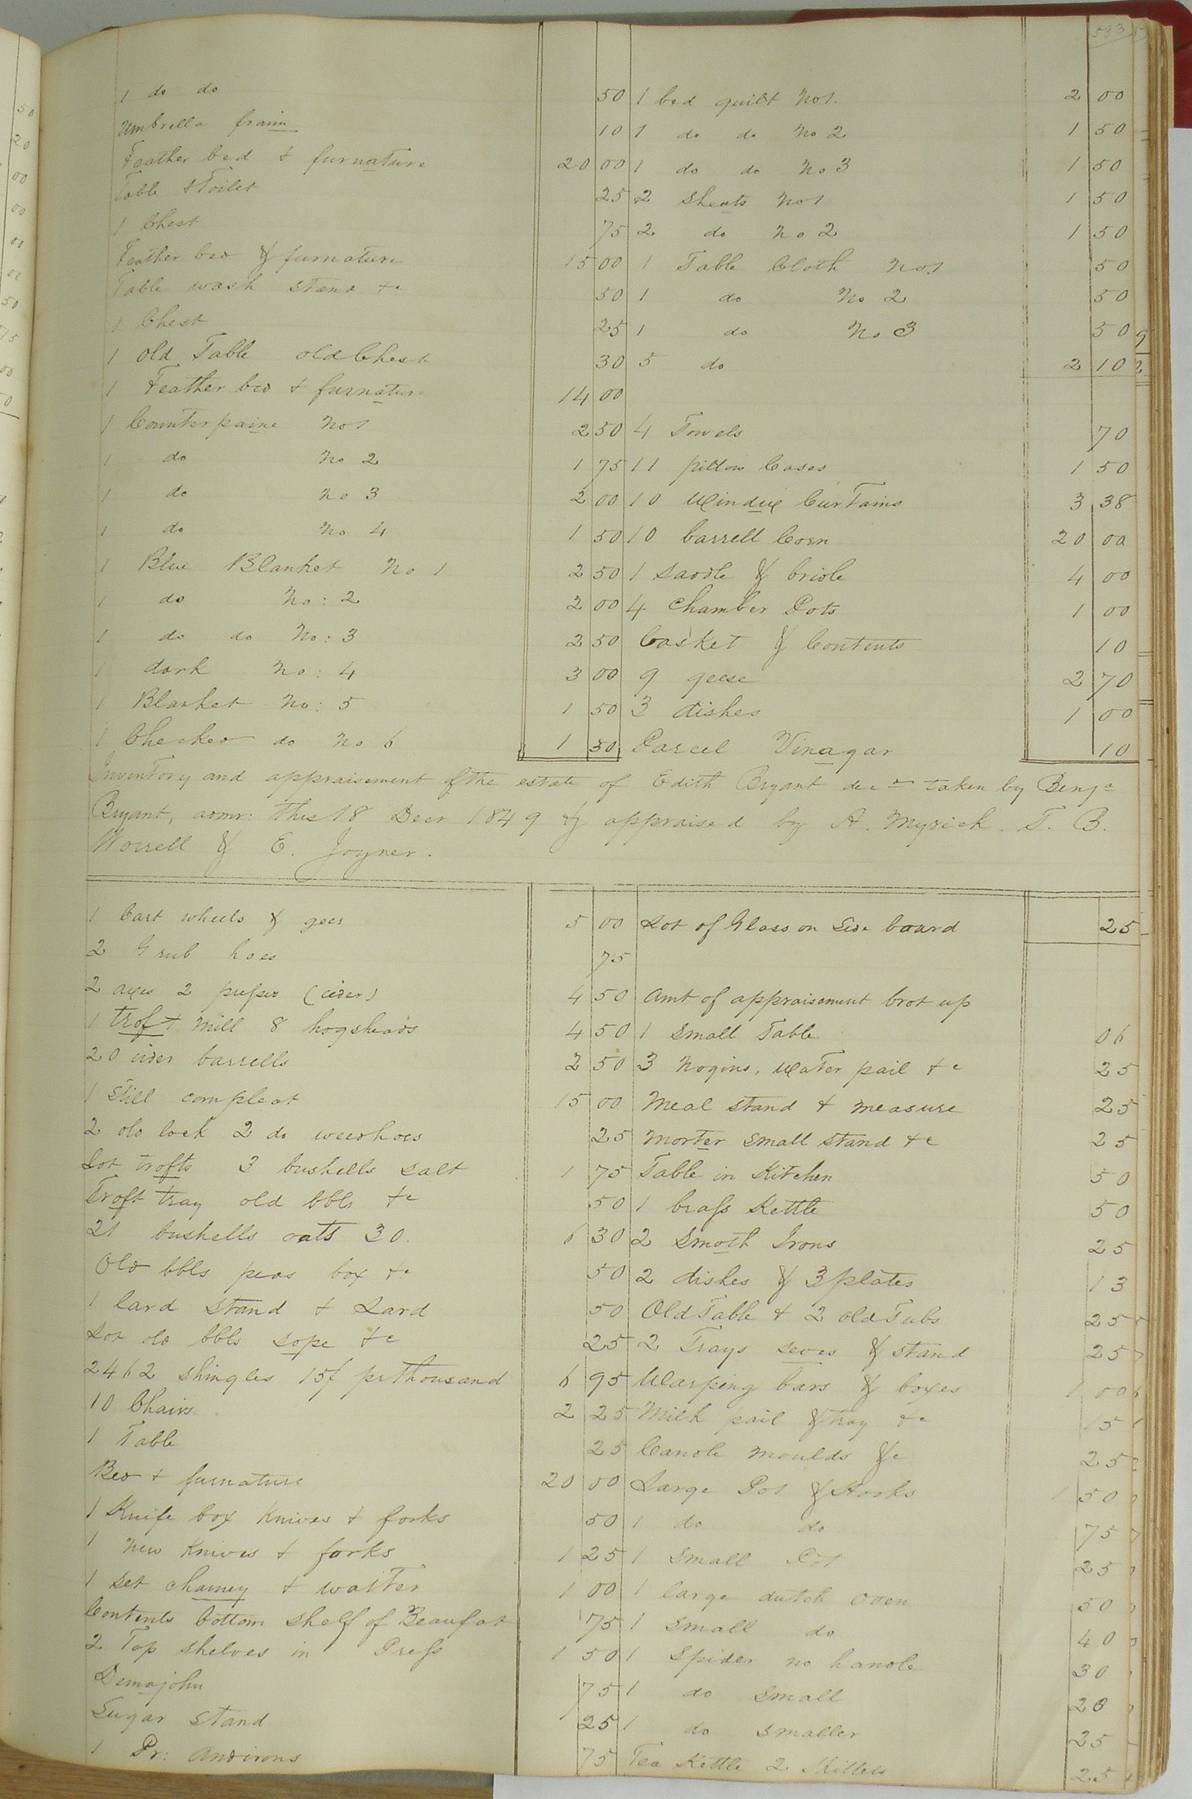 583
1 do do 50
Umbrella fraim 10
Feather bed & furnature 20 00
Table & Toilet 25
1 Chest 75
Feather bed & furnature 15 00
Table wash stand &c 50
1 Chest 25
1 Old Table old Chest 30
1 Feather bed & furnature 14 00
1 Counterpaine No 1 2 50
1 do No 2 1 75
1 do No 3 2 00
1 do No 4 1 50
1 Blue Blanket No 1 2 50
1 do No: 2 2 00
1 do do No: 3 2 50
1 dark No: 4 3 00
1 Blanket No: 5 1 50
1 Checked do No 6 1 50
1 bed quilt No 1. 2 00
1 do do No 2 1 50
1 do do No 3 1 50
2 sheats No 1 1 50
2 do No 2 1 50
1 Table Cloth No 1 50
1 do No 2 50
1 do No 3 50
5 do 2 10
4 Towels 70
11 pillow Cases 1 50
10 Winduw CurTains 3 38
10 barrell Corn 20 00
1 saddle & bridle 4 00
4 Chamber Pots 1 00
Casket & Contents 10
9 geese 2 70
3 dishes 1 00
Parcel Vinagar 10
Inventory and appraisement of the estate of Edith Bryant decd taken by Benjn
Bryant, admr: this 18 Decr 1849 & appraised by A. Myrick. T. B.
Worrell & E. Joyner.
1 Cart wheels & geer 5 00
2 Grub hoes 75
2 axes 2 (cider) 4 50
1 troft mill 8 hogsheads 4 50
20 cider barrells 2 50
1 Still compleat 15 00
2 old lock 2 do weedhoes 25
Lot trofts 3 bushells salt 1 75
Troft tray old bbls &c 50
21 bushells oats 30. 6 30
Old bbls peas box &c 50
1 lard stand & Lard 50
Lot old bbls sope &c 25
2462 shingles 15/ pr thousand 6 95
10 Chairs 2 25
1 Table 25
Bed & furnature 20 00
1 Knife box Knives & forks 50
1 new Knives & forks 1 25
1 set chainey & waiter 1 00
Contents bottom shelf of Beaufat 75
2 Top shelves in Press 1 50
Demajohn 75
Sugar stand 25
1 Pr: Andirons 75
Lot of Glass on Side board 25
Amt of appraisement brot up
1 small Table 06
3 Nogins, Water pail &c 25
Meal stand & measure 25
Morter small stand &c 25
Table in Kitchen 50
1 brass Kettle 50
2 Smoth Irons 25
2 dishes & 3 plates 13
Old Table & 2 old Tubs 25
2 Trays seves & stand 25
Warping bars & boxes 1 00
Milk pail & tray &c 15
Candle moulds &c 25
Large Pot & Hooks 1 50
1 do do 75
1 small Pot 25
1 large dutch oven 50
1 small do 40
1 Spider no handle 30
1 do small 20
1 do smaller 25
Tea Kettle 2 Skillets 25